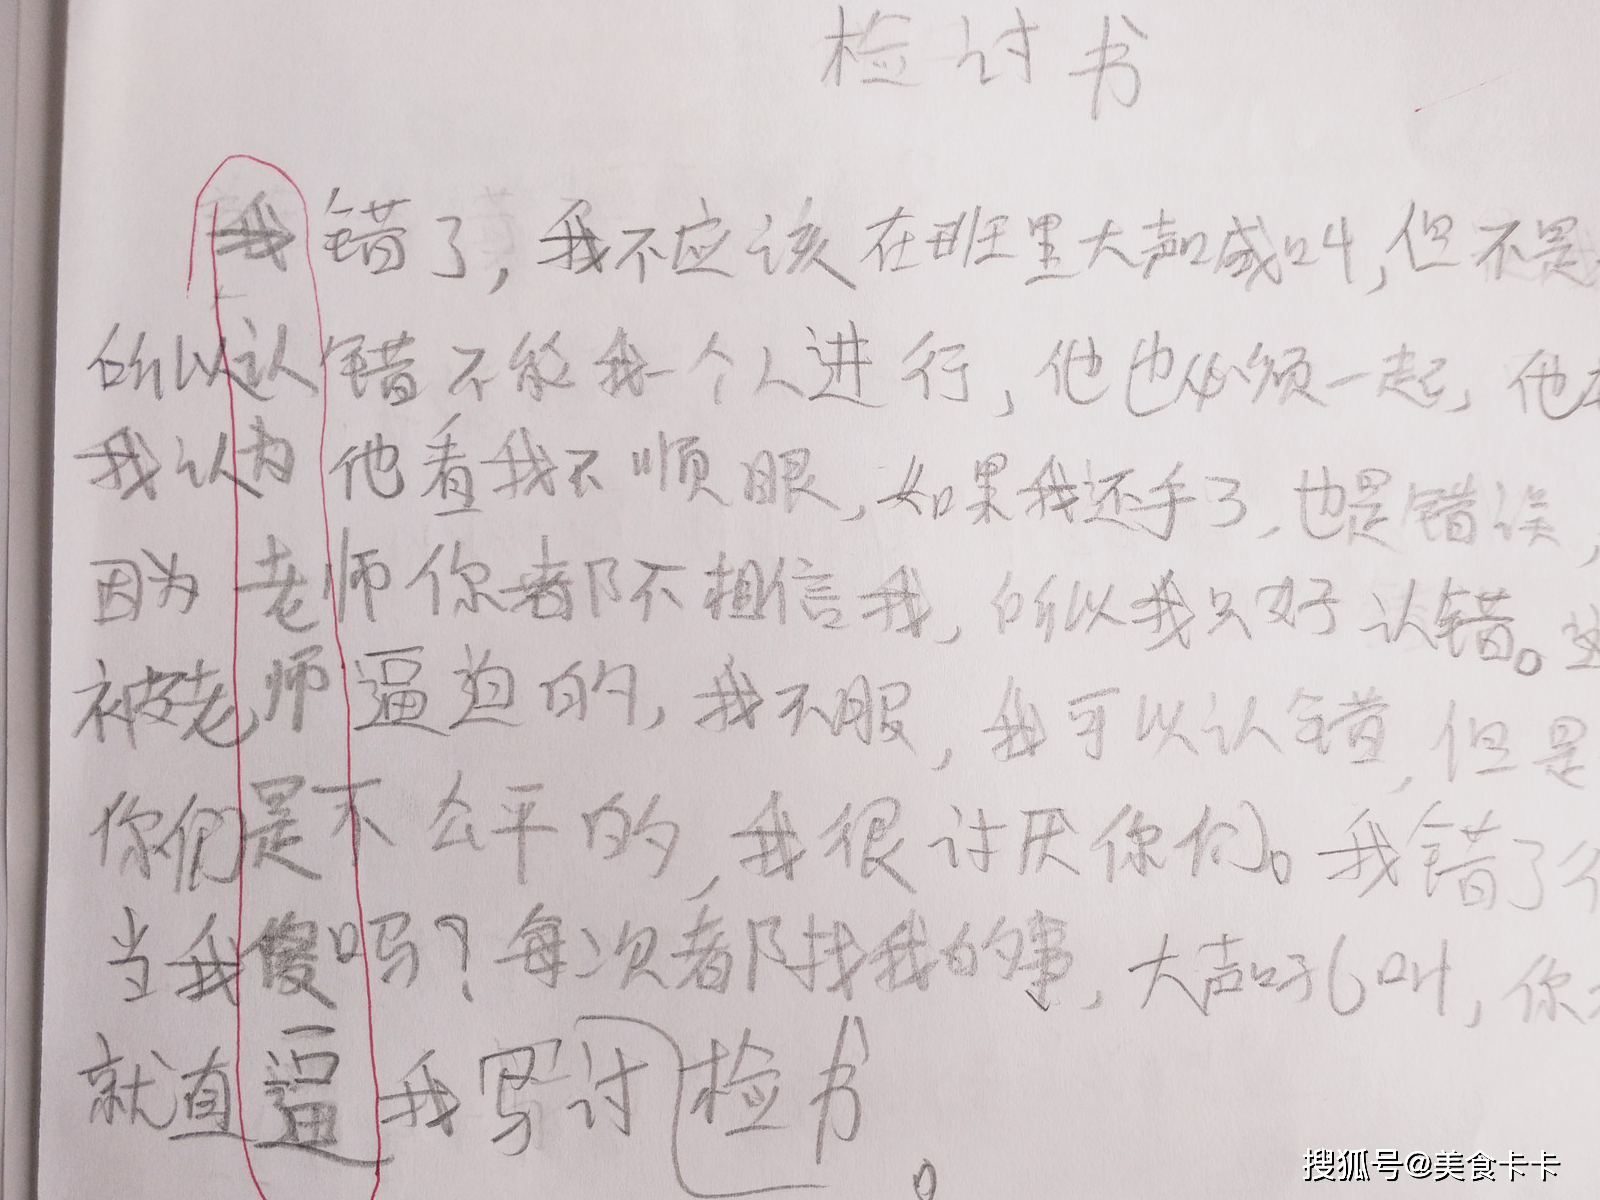 检讨书
我错了，我不应该在班里大声喊叫，但不是
所以认错不能我一个人进行，他也必须一起，他
我认为他看我不顺眼，如果我还手了，也是错误，
因为老师你都不相信我，所以我只好认错。
被老师逼迫的，我不服，我可以认错，但是
你们是不公平的，我很讨厌你们。我错了
当我傻吗？每次都找我的事，大声吼叫，你
就直逼我写讨检书。
搜狐号@美食卡卡